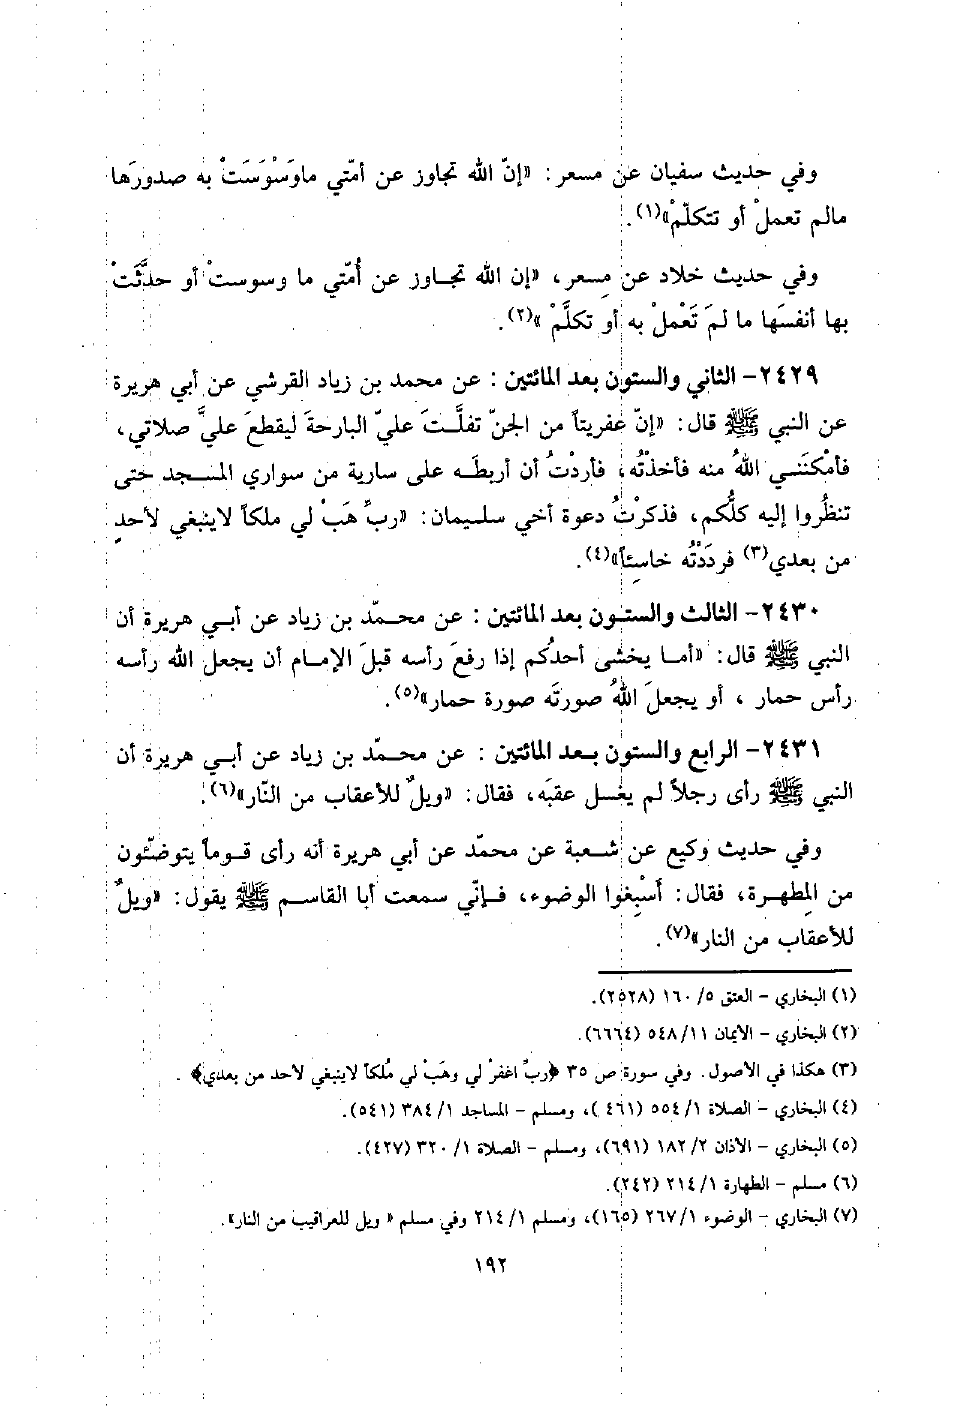 وفي حديث سفيان عن مسعر: «إنّ الله تجاوز عن أمّتي ماوَسْوَسَتْ به صدورَها
مالم تعملْ أو تتكلّمْ»(١).
وفي حديث خلاد عن مِسعر، «إن الله تجاوز عن أُمّتي ما وسوستْ أو حدَّثَتْ
بها أنفسَها ما لمَ تَعْملْ به أو تكلَّمْ»(٢).
٢٤٢٩- الثاني والستون بعد المائتين: عن محمد بن زياد القرشي عن أبي هريرة
عن النبي ﷺ قال: «إنّ عفريتاً من الجنّ تفلَّتَ عليّ البارحةَ ليقطعَ عليَّ صلاتي،
فأمْكنَني اللهُ منه فأخذْتُه، فأردْتُ أن أربطَه على سارية من سواري المسجد حتى
تنظُروا إليه كلُّكم، فذكرْتُ دعوة أخي سليمان: «ربِّ هَبْ لي ملكاً لاينبغي لأحدٍ
من بعدي(٣) فردَدْتُه خاسِئاً»(٤).
٢٤٣٠- الثالث والستون بعد المائتين: عن محمّد بن زياد عن أبي هريرة أن
النبي ﷺ قال: «أما يخشى أحدُكم إذا رفعَ رأسه قبلَ الإمام أن يجعل الله رأسه
رأس حمار، أو يجعلَ اللهُ صورتَه صورة حمار»(٥).
٢٤٣١- الرابع والستون بعد المائتين: عن محمّد بن زياد عن أبي هريرة أن
النبي ﷺ رأى رجلاً لم يغسل عقبَه، فقال: «ويلٌ للأعقاب من النّار»(٦).
وفي حديث وكيع عن شعبة عن محمّد عن أبي هريرة أنه رأى قوماً يتوضّئون
من المِطهرة، فقال: أَسْبِغوا الوضوء، فإنّي سمعت أبا القاسم ﷺ يقول: «ويلٌ
للأعقاب من النار»(٧).
(١) البخاري - العتق ٥/ ١٦٠ (٢٥٢٨).
(٢) البخاري - الأيمان ١١/ ٥٤٨ (٦٦٦٤).
(٣) هكذا في الأصول. وفي سورة ص ٣٥ ﴿ربِّ اغفرْ لي وهَبْ لي مُلكاً لاينبغي لأحد من بعدي﴾.
(٤) البخاري - الصلاة ١/ ٥٥٤ (٤٦١)، ومسلم - المساجد ١/ ٣٨٤ (٥٤١).
(٥) البخاري - الأذان ٢/ ١٨٢ (٦٩١)، ومسلم - الصلاة ١/ ٣٢٠ (٤٢٧).
(٦) مسلم - الطهارة ١/ ٢١٤ (٢٤٢).
(٧) البخاري - الوضوء ١/ ٢٦٧ (١٦٥)، ومسلم ١/ ٢١٤ وفي مسلم « ويل للعراقيب من النار».
١٩٢